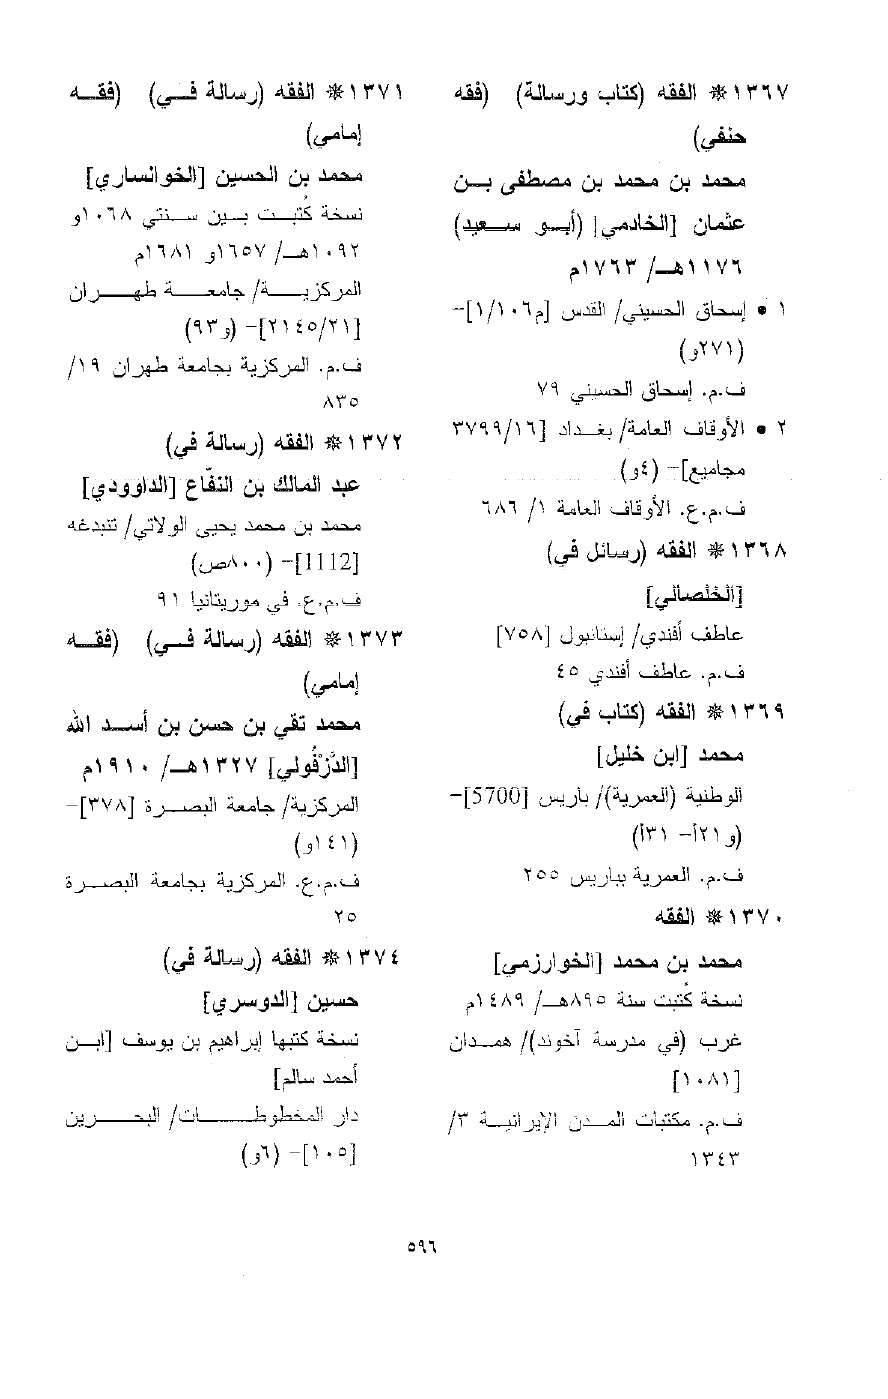 ١٣٦٧* الفقه (كتاب ورسالة) (فقه
حنفي)
محمد بن محمد بن مصطفى بـن
عثمان [الخادمي] (أبـو سـعيد)
١١٧٦هـ/ ١٧٦٣م
١ • إسحاق الحسيني/ القدس [م١/١٠٦]-
(٢٧١و)
ف.م. إسحاق الحسيني ٧٩
٢ • الأوقاف العامة/ بغـداد [٣٧٩٩/١٦
مجاميع]- (٤و)
ف.م.ع. الأوقاف العامة ١/ ٦٨٦
١٣٦٨* الفقه (رسائل في)
[الخلصالي]
عاطف أفندي/ إستانبول [٧٥٨]
ف.م. عاطف أفندي ٤٥
١٣٦٩* الفقه (كتاب في)
محمد [ابن خليل]
الوطنية (العمرية)/ باريس [5700]-
(و٢١أ- ٣١أ)
ف.م. العمرية بباريس ٢٥٥
١٣٧٠* الفقه
محمد بن محمد [الخوارزمي]
نسخة كُتبت سنة ٨٩٥هـ/ ١٤٨٩م
غرب (في مدرسة آخوند)/ همـدان
[١٠٨١]
ف.م. مكتبات المـدن الإيرانيـة ٣/
١٣٤٣
١٣٧١* الفقه (رسالة فـي) (فقـه
إمامي)
محمد بن الحسين [الخوانساري]
نسخة كُتبـت بـين سـنتي ١٠٦٨و
١٠٩٢هـ/ ١٦٥٧و ١٦٨١م
المركزيـة/ جامعـة طهـران
[٢١٤٥/٢١]- (و٩٣)
ف.م. المركزية بجامعة طهران ١٩/
٨٣٥
١٣٧٢* الفقه (رسالة في)
عبد المالك بن النفّاع [الداوودي]
محمد بن محمد يحيى الولاتي/ تنبدغه
[1112]- (٨٠٠ص)
ف.م.ع. في موريتانيا ٩١
١٣٧٣* الفقه (رسالة فـي) (فقـه
إمامي)
محمد تقي بن حسن بن أسـد الله
[الدَّزْفُولي] ١٣٢٧هـ/ ١٩١٠م
المركزية/ جامعة البصـرة [٣٧٨]-
(١٤١و)
ف.م.ع. المركزية بجامعة البصـرة
٢٥
١٣٧٤* الفقه (رسالة في)
حسين [الدوسري]
نسخة كتبها إبراهيم بن يوسف [ابـن
أحمد سالم]
دار المخطوطـات/ البحـرين
[١٠٥]- (٦و)
٥٩٦